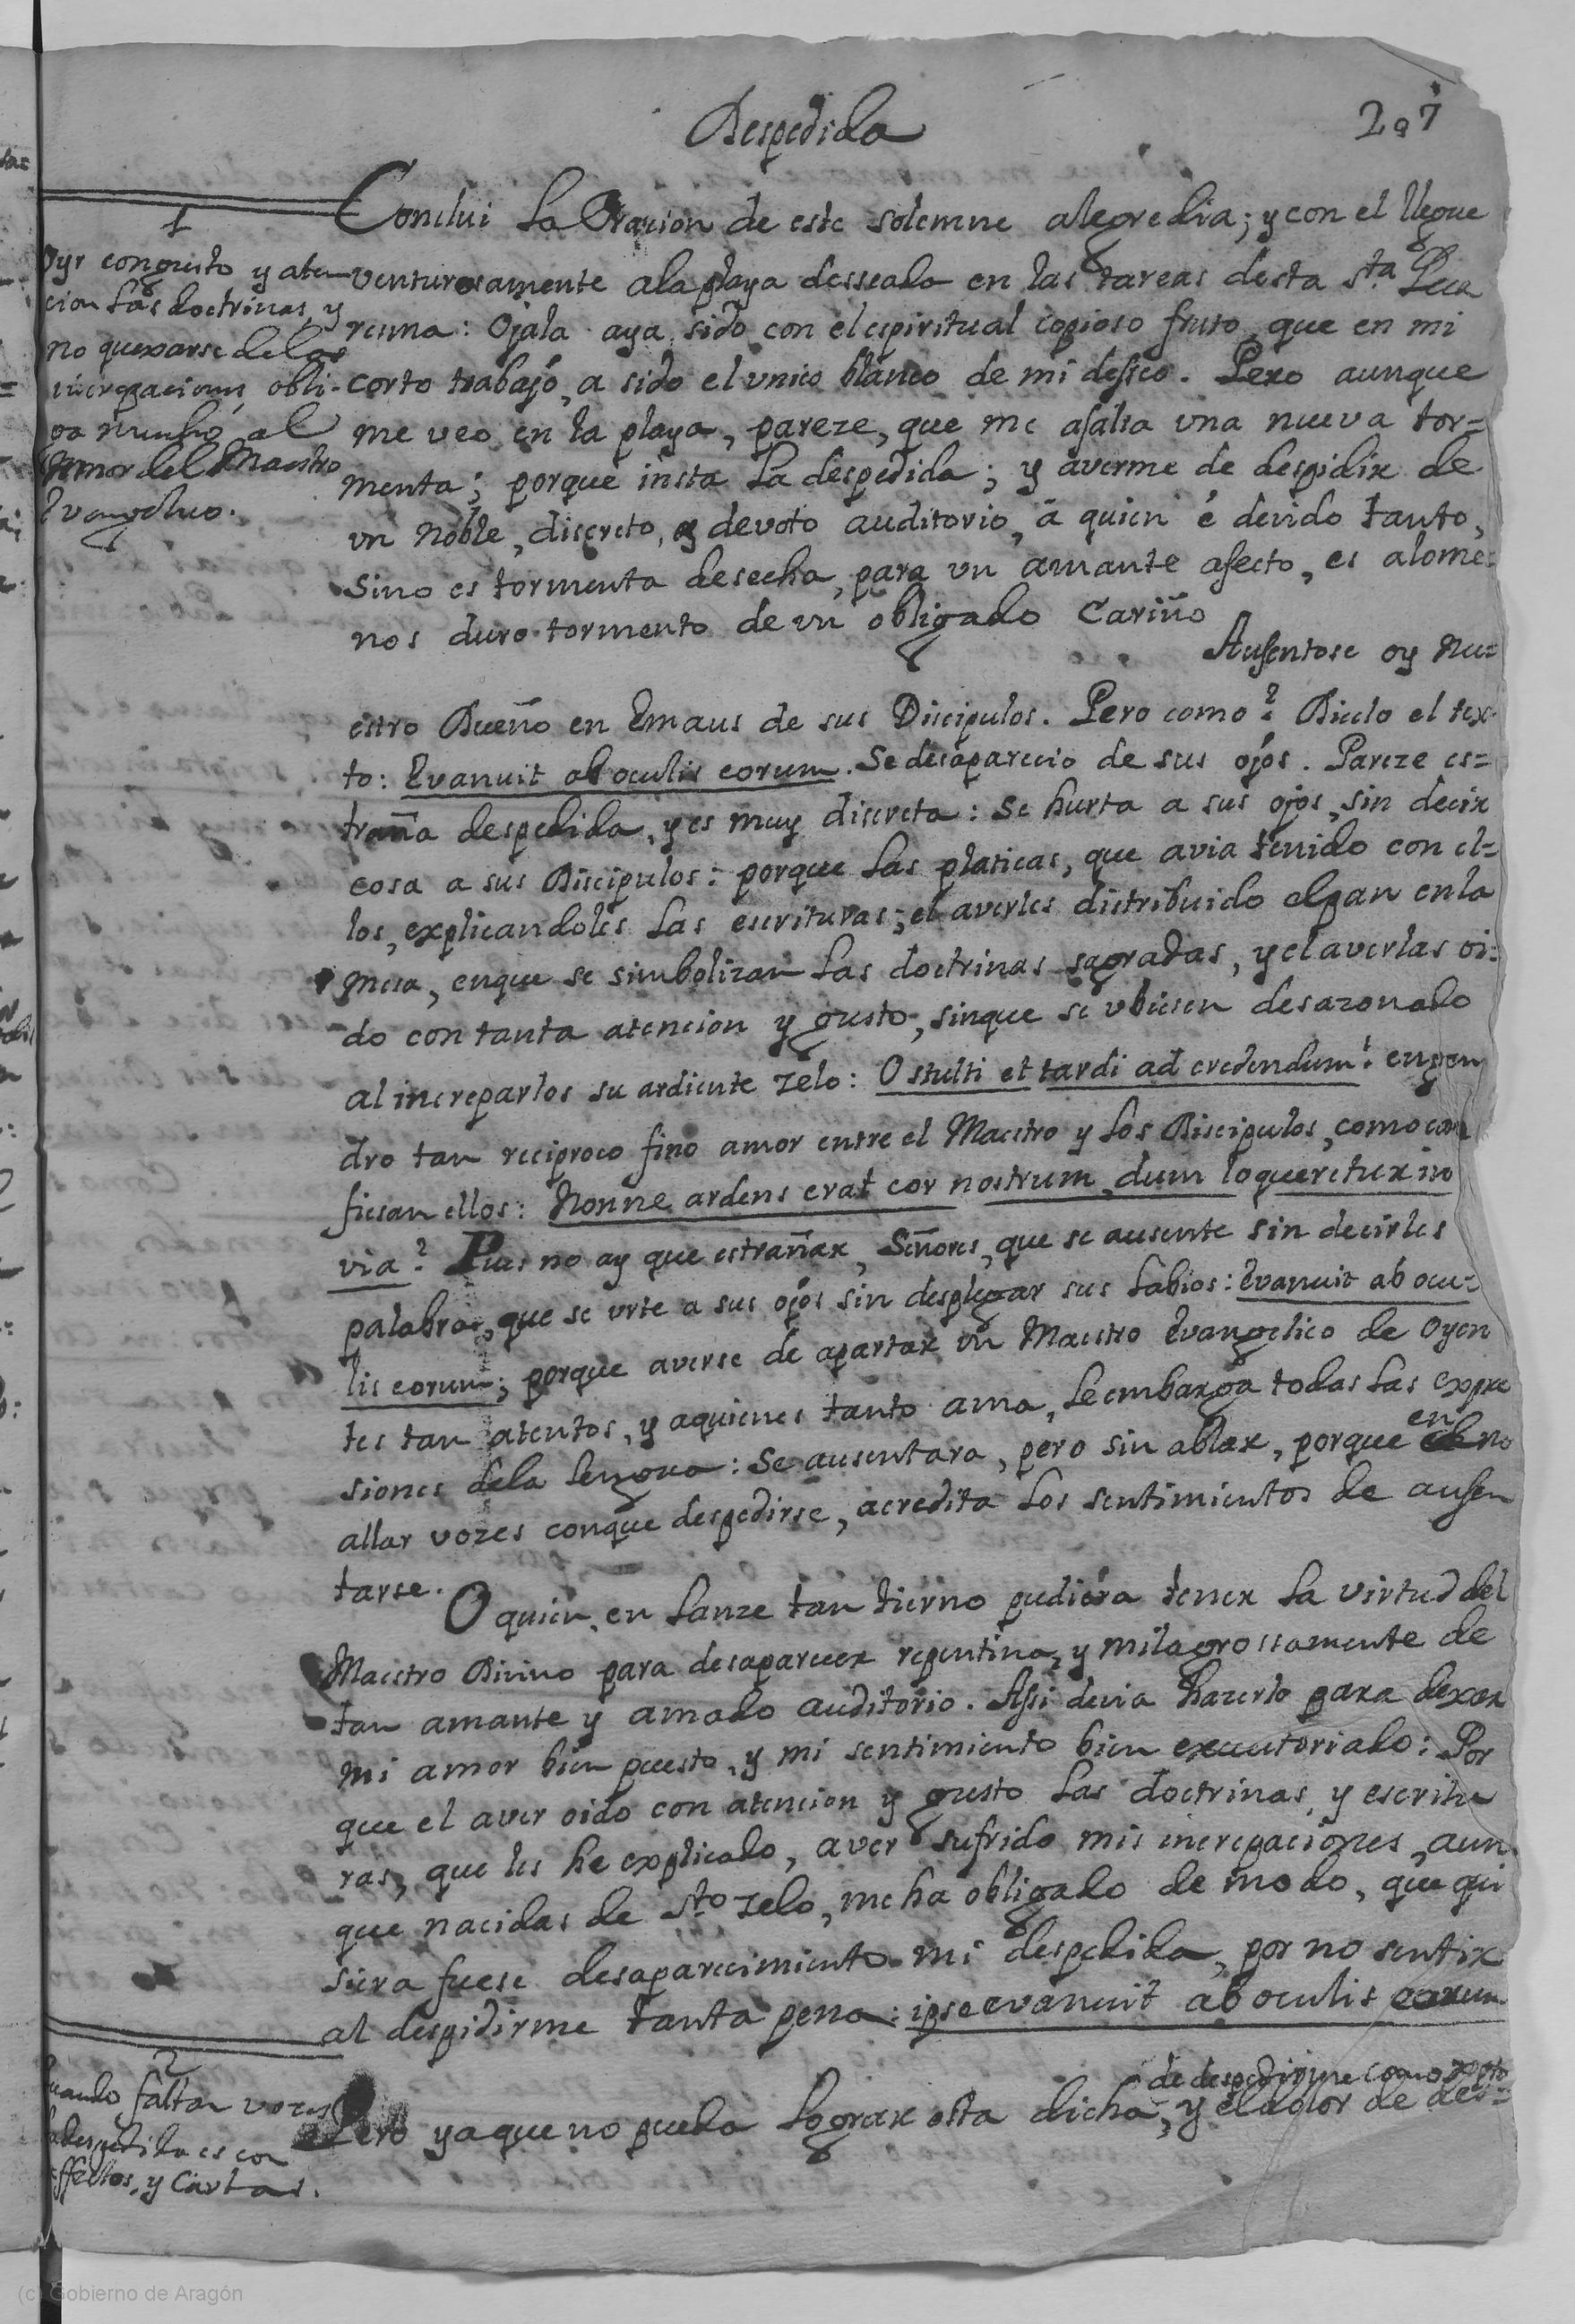 Despedida
207
1
Oyr con gusto y aten
cion las doctrinas, y
no quexarse de las
increpaciones, obli-
ga mucho al
Amor del Maestro
Evangelico.
Conclui La Oracion de este solemne alegre dia; y con el llegue
venturosamente a la playa desseada en las tareas desta Sta. Qua
resma: Ojala aya sido con el espiritual copioso fruto, que en mi
corto trabajo, a sido el unico blanco de mi desseo. Pero aunque
me veo en la playa, pareze, que me asalta una nueva tor=
menta; porque insta La despedida; y averme de despidir de
un Noble, discreto, y devoto auditorio, á quien é devido tanto,
Sino es tormenta desecha, para un amante afecto, es alome=
nos duro tormento de un obligado Cariño
Ausentose oy Nu=
estro Dueño en Emaus de sus Discipulos. Pero como? Dicelo el tex
to: Evanuit ab oculis eorum. Se desaparecio de sus ojos. Pareze es=
traña despedida, y es muy discreta: Se hurta a sus ojos, sin decir
cosa a sus Discipulos: porque Las platicas, que avia tenido con el=
los, explicandoles Las escrituras; el averles distribuido el pan en la
Mesa, enque se simbolizan Las doctrinas sagradas, y el averlas oi=
do con tanta atencion y gusto, sinque se ubiesen desazonado
al increparlos su ardiente zelo: O stulti et tardi ad credendum! engen
dro tan reciproco fino amor entre el Maestro y Los Discipulos, como con
fiesan ellos: Nonne ardens erat cor nostrum, dum loqueretur in
via? Pues no ay que estrañar, Señores, que se ausente sin decirles
palabra, que se urte a sus ojos sin desplegar sus Labios: Evanuit ab ocu=
lis eorum; porque averse de apartar un Maestro Evangelico de Oyen
tes tan atentos, y aquienes tanto ama, Le embarga todas Las expre
siones dela Lengua: Se ausentara, pero sin ablar, porque en no
allar vozes conque despedirse, acredita Los sentimientos de ausen
tarse.
O quien, en Lanze tan tierno pudiera tener La virtud del
Maestro Divino para desaparecer repentina, y milagrossamente de
tan amante y amado auditorio. Assi devia hazerlo para dexar
mi amor bien puesto, y mi sentimiento bien executoriado: Por
que el aver oido con atencion y gusto Las doctrinas, y escritu
ras, que les he explicado, aver sufrido mis increpaciones, aun
que nacidas de Sto. zelo, me ha obligado de modo, que qui
siera fuese desaparecimiento mi despedida, por no sentir
al despidirme tanta pena: ipse evanuit ab oculis eorum
2
Quando faltan vozes
la despedida es con
affectos, y Cartas.
de despedirme como
Pero ya que no pueda Lograr esta dicha, y el dolor de des=
(c) Gobierno de Aragón